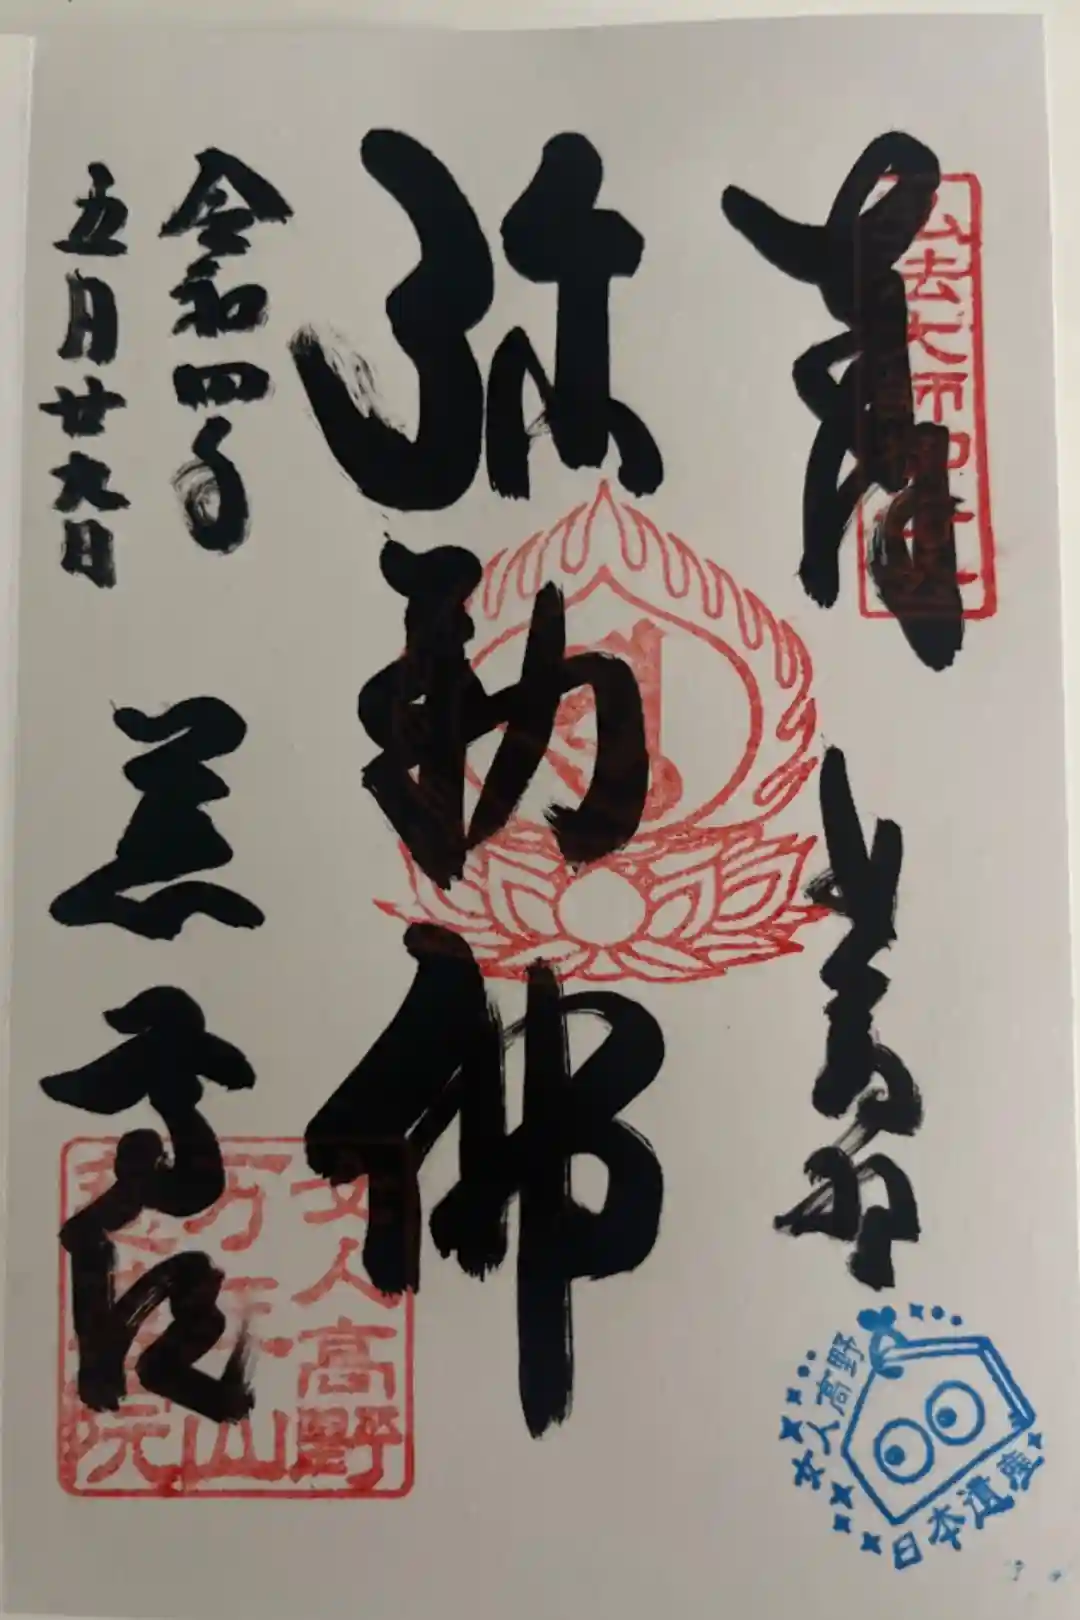 弘法大師御母公
奉
弥勒佛
令和四年
五月廿九日
慈尊院
女人高野
万年山
慈尊院
女人高野
日本遺産